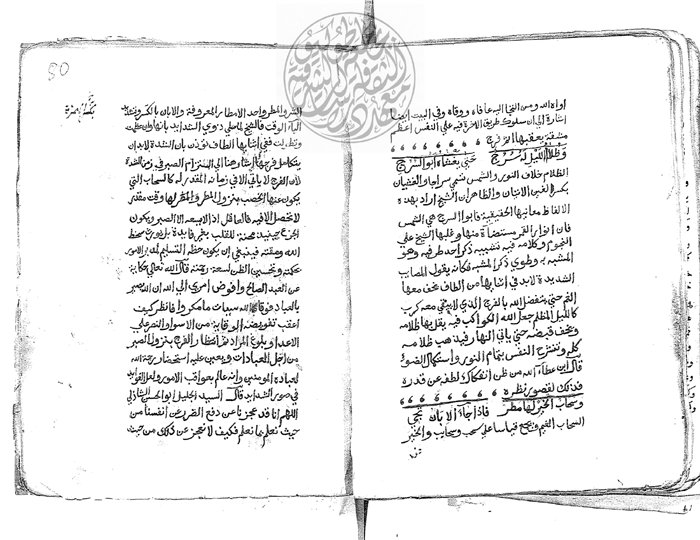 اواه الله ومن التجا اليه عافاه ووقاه وفي البيت ايضا
اشارة الي ان سلوك طريق الاخرة فيه علي النفس اعظم
مشقة يعقبها الفرج
وظلام الليل له سرج حتي يغشاه ابو السرج
الظلام خلاف النور والشمس تسمي سراجا والغشيان
بكسر الغين الاتيان والظاهر ان الشيخ اراد بهذه
الالفاظ معانيها الحقيقية فابو السرج هي الشمس
فان انوار القمر مستضاة منها وغلبها الشيخ علي
النجوم وكلامه فيه تشبيه ذكر احد طرفيه وهو
المشبه به وطوي ذكر المشبه فكانه يقول المصايب
الشديدة لابد في اثنايها من الطاف تخف معها
الغم حتي يتفضل الله بالفرج الذي لا يبقي معه كرب
كالليل المظلم جعل الله الكواكب فيه يقل بها ظلامه
ويخف قبضه حتي ياتي النهار فيذهب ظلامه
كله وتنشرح النفس بتمام النور واستكمال الضوء
قال ابن عطاء الله من ظن انفكاك لطفه عن قدره
فذلك لقصور نظره
وسحاب الخير لها مطر فاذا جاء الابان تجي
السحاب الغيم ويجمع قياسا علي سحب وسحايب والخير
80
الشر والمطر واحد الامطار المعروفة والابان بالكسر وتشديد
الباء الوقت فالشيخ
وتطاولت ففي اثنايها الطاف تؤذن بان الشدة لابد ان
يتكامل فرجها اشار هنا الي التزام الصبر في زمن الشدة
لان الفرج لا ياتي الا في زمانه المقدر له كالسحاب التي
يكون عنها الخصب بنزول المطر والمطر لها وقت مقدر
لا تحصل الا فيه فالعاقل اذا لا يسعه الا الصبر ويكون
الجزع حينيذ محنة للقلب بغير فايدة بل يورث سخط
الله ومقته فينبغي ان يكون حظه التسليم لمدبر الامور
حكمته وتحسين الظن لسعة رحمته قال الله تعالي حكاية
عن العبد الصالح وافوض امري الي الله ان الله بصير
بالعباد فوقاه الله سيئات ما مكروا فانظر كيف
اعقب تفويضه الوقاية من الاسواء والنصر علي
الاعداء وبلوغ المراد ثم انتظار الفرج بنزول الصبر
من اجل العبادات ويعين عليه استحضار رحمة الله
لعباده المومنين وانه عالم بعواقب الامور ولعل الفوايد
في صور الشدايد قال السيد الجليل ابو الحسن الشاذلي
اللهم انا قد عجزنا عن دفع الضر عن انفسنا من
حيث نعلم بما نعلم فكيف لا نعجز عن ذلك من حيث